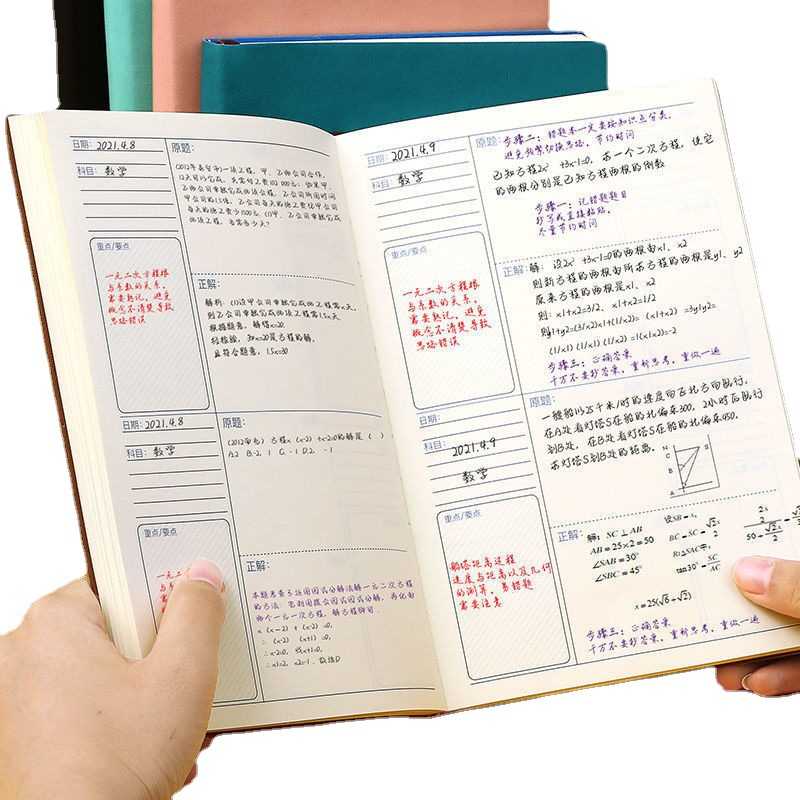 日期: 2021.4.8
科目: 数学
原题:
(2012年
)一项工程,甲、乙两公司合作,
12天可以完成,共需付工费102000元,如果甲、
乙两公司单独完成此项工程,乙公司所用时间
甲公司的1.5倍,乙公司每天的施工费比甲公司
每天的施工费少1500元.(1)甲、乙公司单独完成
此项工程,各需多少天?
重点/要点
一元二次方程根
与系数的关系,
需要熟记,避免
概念不清楚导致
思路错误
正解:
解析:(1)设甲公司单独完成此工程需x天,
则乙公司单独完成此项工程需1.5x天
根据题意,解得x=20
经检验,知x=20是方程的解,
且符合题意,1.5x=30
日期: 2021.4.8
科目: 数学
原题:
方程x (x-2) +x-2=0的解是 ( )
A.2 B.-2, 1 C.-1 D.2, -1
重点/要点
一元二
与系
需要
概念
思路
正解:
本题考查了运用因式分解法解一元二次方程
的方法:它利用提公因式因式分解,再化为
两个一元一次方程,解方程即可.
x (x-2) + (x-2) =0,
∴ (x-2) (x+1) =0,
∴x-2=0, 或x+1=0,
∴x1=2, x2=-1. 故选D
日期: 2021.4.9
科目: 数学
原题: 步骤二:错题本一定要按知识点分类,
避免频繁切换思路,节约时间
已知方程2x² +3x-1=0,求一个二次方程,使它
的两根分别是已知方程两根的倒数
步骤一:记错题题目
抄写或直接粘贴,
尽量节约时间
重点/要点
一元二次方程根
与系数的关系,
需要熟记,避免
概念不清楚导致
思路错误
正解: 解: 设2x² +3x-1=0的两根为x1, x2
则新方程的两根由所求方程的两根是y1, y2
原来方程的两根是x1, x2
则: x1+x2=3/2, x1+x2=1/2
则y1+y2=(3/2)x1+(1/x2)= (x1+x2) =3y1y2=
(1/x1) (1/x1) (1/x2) =1(x1x2)=-2
步骤三:正确答案
千万不要抄答案,重新思考,重做一遍
日期:
2021.4.9
科目:
数学
原题:
一艘船以25千米/时的速度向正北方向航行,
在A处看灯塔S在船的北偏东300, 2小时后航行
到B处,在B处看灯塔S在船的北偏东450.
求灯塔S到B处的距离.
N
C
B
A
S
重点/要点
船塔距离过程
速度与距离以及几何
的测算,易错题
需要注意
正解: 解: SC ⊥ AB
AB = 25×2 = 50
∠SAB = 30°
∠SBC = 45°
设SB = x,
BC = SC = √2x/2
Rt△SAC中,
tan30° = SC/AC
x = 25(√6 + √2)
步骤三:正确答案
千万不要抄答案,重新思考,重做一遍